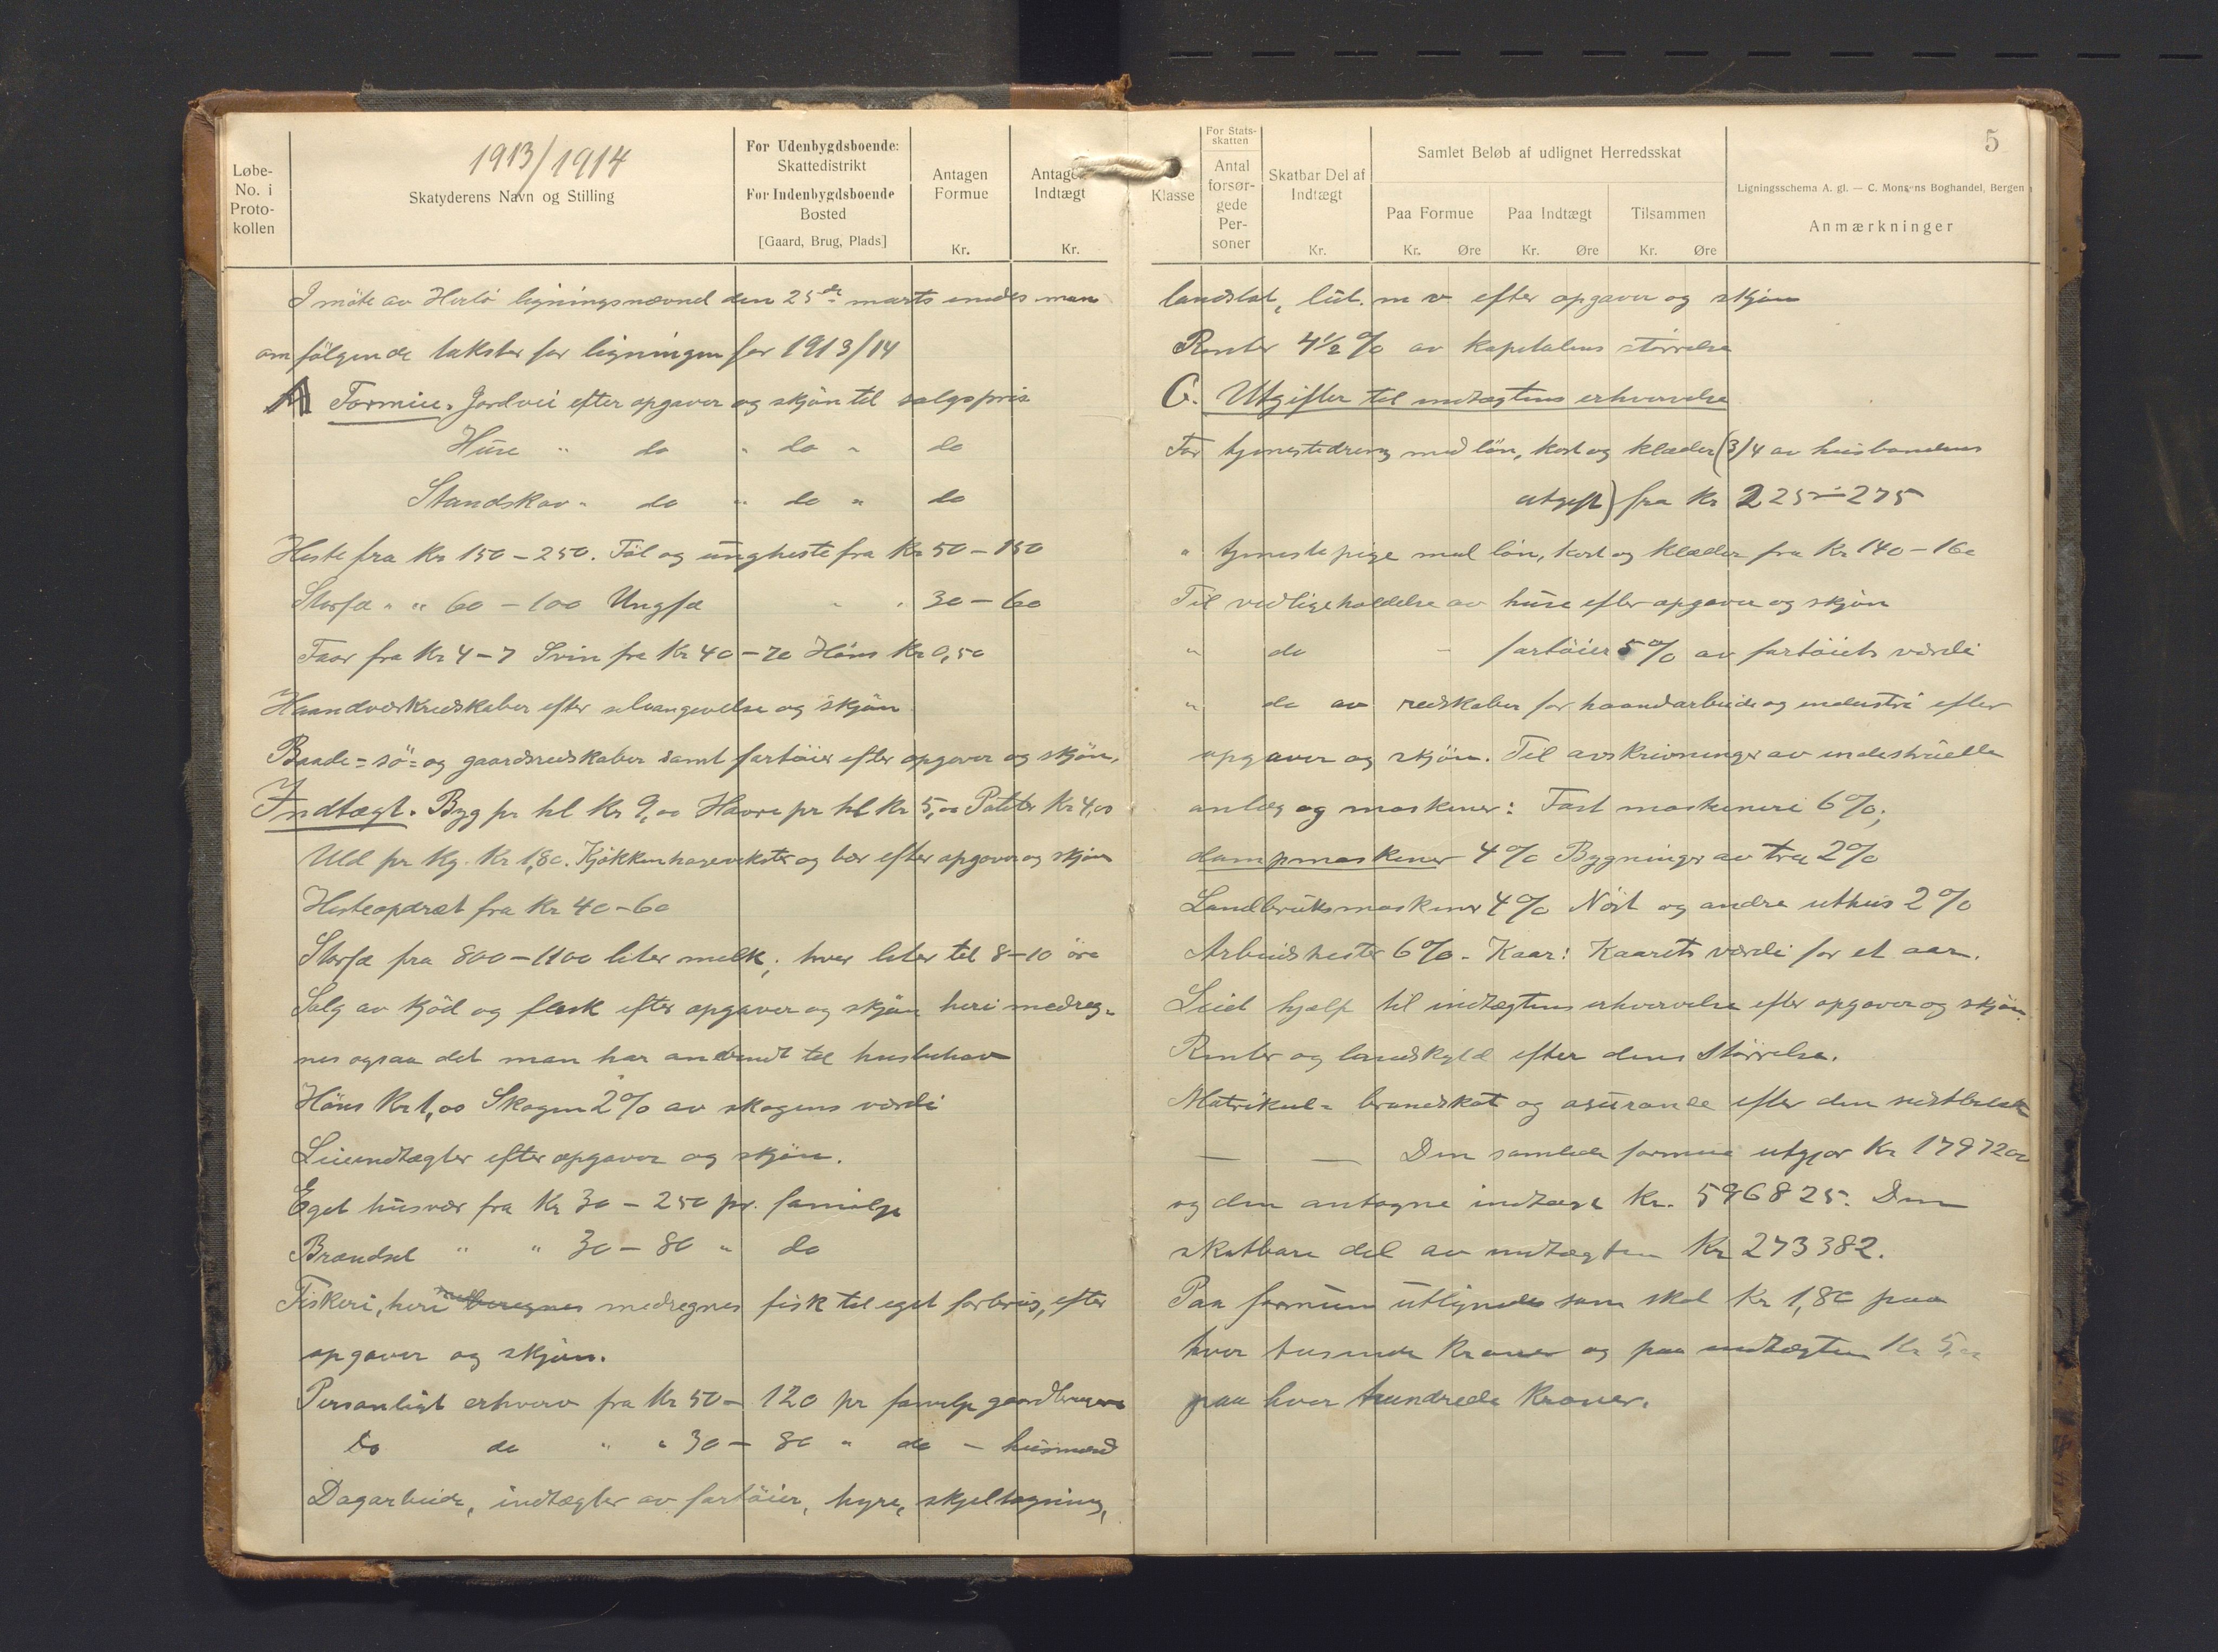 1913/1914
5
Løbe-
No. i
Proto-
kollen
Skatyderens Navn og Stilling
For Udenbygdsboende:
Skattedistrikt
For Indenbygdsboende
Bosted
[Gaard, Brug, Plads]
Antagen
Formue
Kr.
Indtægt
Kr.
Klasse
For Stats-
skatten
Antal
forsør-
gede
Per-
soner
Skatbar Del af
Indtægt
Kr.
Samlet Beløb af udlignet Herredsskat
Paa Formue
Kr. Øre
Paa Indtægt
Kr. Øre
Tilsammen
Kr. Øre
Ligningsschema A. gl. — C. Monsens Boghandel, Bergen
Anmærkninger
I møte av Herlö ligningsnævnd den 25de marts enedes man
om følgende takster for ligningen for 1913/14
A Formue. Jordvei efter opgaver og skjön til salgspris
Huse " do " do " do
Standskov " do " do " do
Heste fra Kr 150 - 250. Föl og ungheste fra Kr 50 - 150
Storfæ " " 60 - 100 Ungfæ " " 30 - 60
Faar fra Kr 4 - 7 Svin fra Kr 40 - 70 Höns Kr 0,50
Haandverksredskaber efter selvangivelse og skjön
Baade= sö= og gaardsredskaber samt fartöier efter opgaver og skjön.
Indtægt. Byg pr hl Kr 9,00 Havre pr hl Kr 5,00 Poteter Kr 4,00
Uld pr Kg. Kr 1,80. Kjökkenhagevekster og bær efter opgaver og skjön
Hesteopdræt fra Kr 40 - 60
Storfæ fra 800 - 1100 liter melk; hver liter til 8 - 10 öre
Salg av kjöd og flesk efter opgaver og skjön heri medreg-
nes ogsaa det man har anvendt til husbehov
Höns Kr 1,00 Skogen 2% av skogens værdi
Leieindtægter efter opgaver og skjön.
Eget husvær fra Kr 30 - 250 pr. familje
Brændsel " " 30 - 80 " do
Fiskeri, heri beregnes medregnes fisk til eget forbrug, efter
opgaver og skjön.
Personligt erhverv fra Kr 50 - 120 pr familje gaardbrugere
Do do " " 30 - 80 " do - husmænd
Dagarbeide, indtægter av fartöier, hyre, skjeltagning,
landslot, lut. m v efter opgaver og skjön
Renter 4 1/2 % av kapitalens störrelse
C. Utgifter til indtægtens erhvervelse
For tjenestedreng med lön, kost og klæder (3/4 av husbondens
utgift) fra Kr 225 - 275
" tjenestepige med lön, kost og klæder fra Kr 140 - 160
Til vedligeholdelse av huse efter opgaver og skjön
" do - fartöier 5% av fartöiets værdi
" do av redskaber for haandarbeide og industri efter
opgaver og skjön. Til avskrivninger av industrielle
anlæg og maskiner: Fast maskineri 6%,
dampmaskiner 4% Bygninger av træ 2%
Landbruksmaskiner 4% Nöst og andre uthus 2%
Arbeidshester 6%. Kaar: Kaarets værdi for et aar.
Leid hjelp til indtægtens erhvervelse efter opgaver og skjön.
Renter og landskyld efter dens Störrelse.
Matrikul= brandskat og assurance efter den sidstbetalte
— — Den samlede formue utgjør Kr 1797200
og den antagne indtægt Kr. 596825. Den
skatbare del av indtægten Kr 273382.
Paa formuen utlignedes som skat Kr 1,80 paa
hver tusinde Kroner og paa indtægten Kr 5,00
paa hver hundrede Kroner.